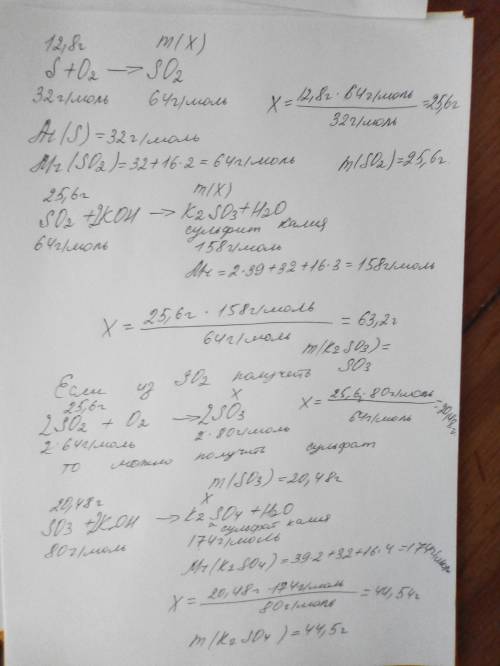 12,8г m(X)
S + O2 → SO2
32г/моль 64г/моль
X = 12,8г · 64г/моль / 32г/моль = 25,6г
Ar(S) = 32г/моль
Mr(SO2) = 32+16·2 = 64г/моль m(SO2) = 25,6г.
25,6г m(X)
SO2 + 2KOH → K2SO3 + H2O
сульфит калия
64г/моль 158г/моль
Mr = 2·39+32+16·3 = 158г/моль
X = 25,6г · 158г/моль / 64г/моль = 63,2г
m(K2SO3) =
Если из SO2 получить SO3
25,6г X
2SO2 + O2 → 2SO3
2·64г/моль 2·80г/моль
X = 25,6г·80г/моль / 64г/моль = 20,48г.
то можно получить сульфат
m(SO3) = 20,48г
20,48г X
SO3 + 2KOH → K2SO4 + H2O
сульфат калия
80г/моль 174г/моль
Mr(K2SO4) = 39·2+32+16·4 = 174г/моль
X = 20,48г·174г/моль / 80г/моль = 44,54г
m(K2SO4) = 44,5г